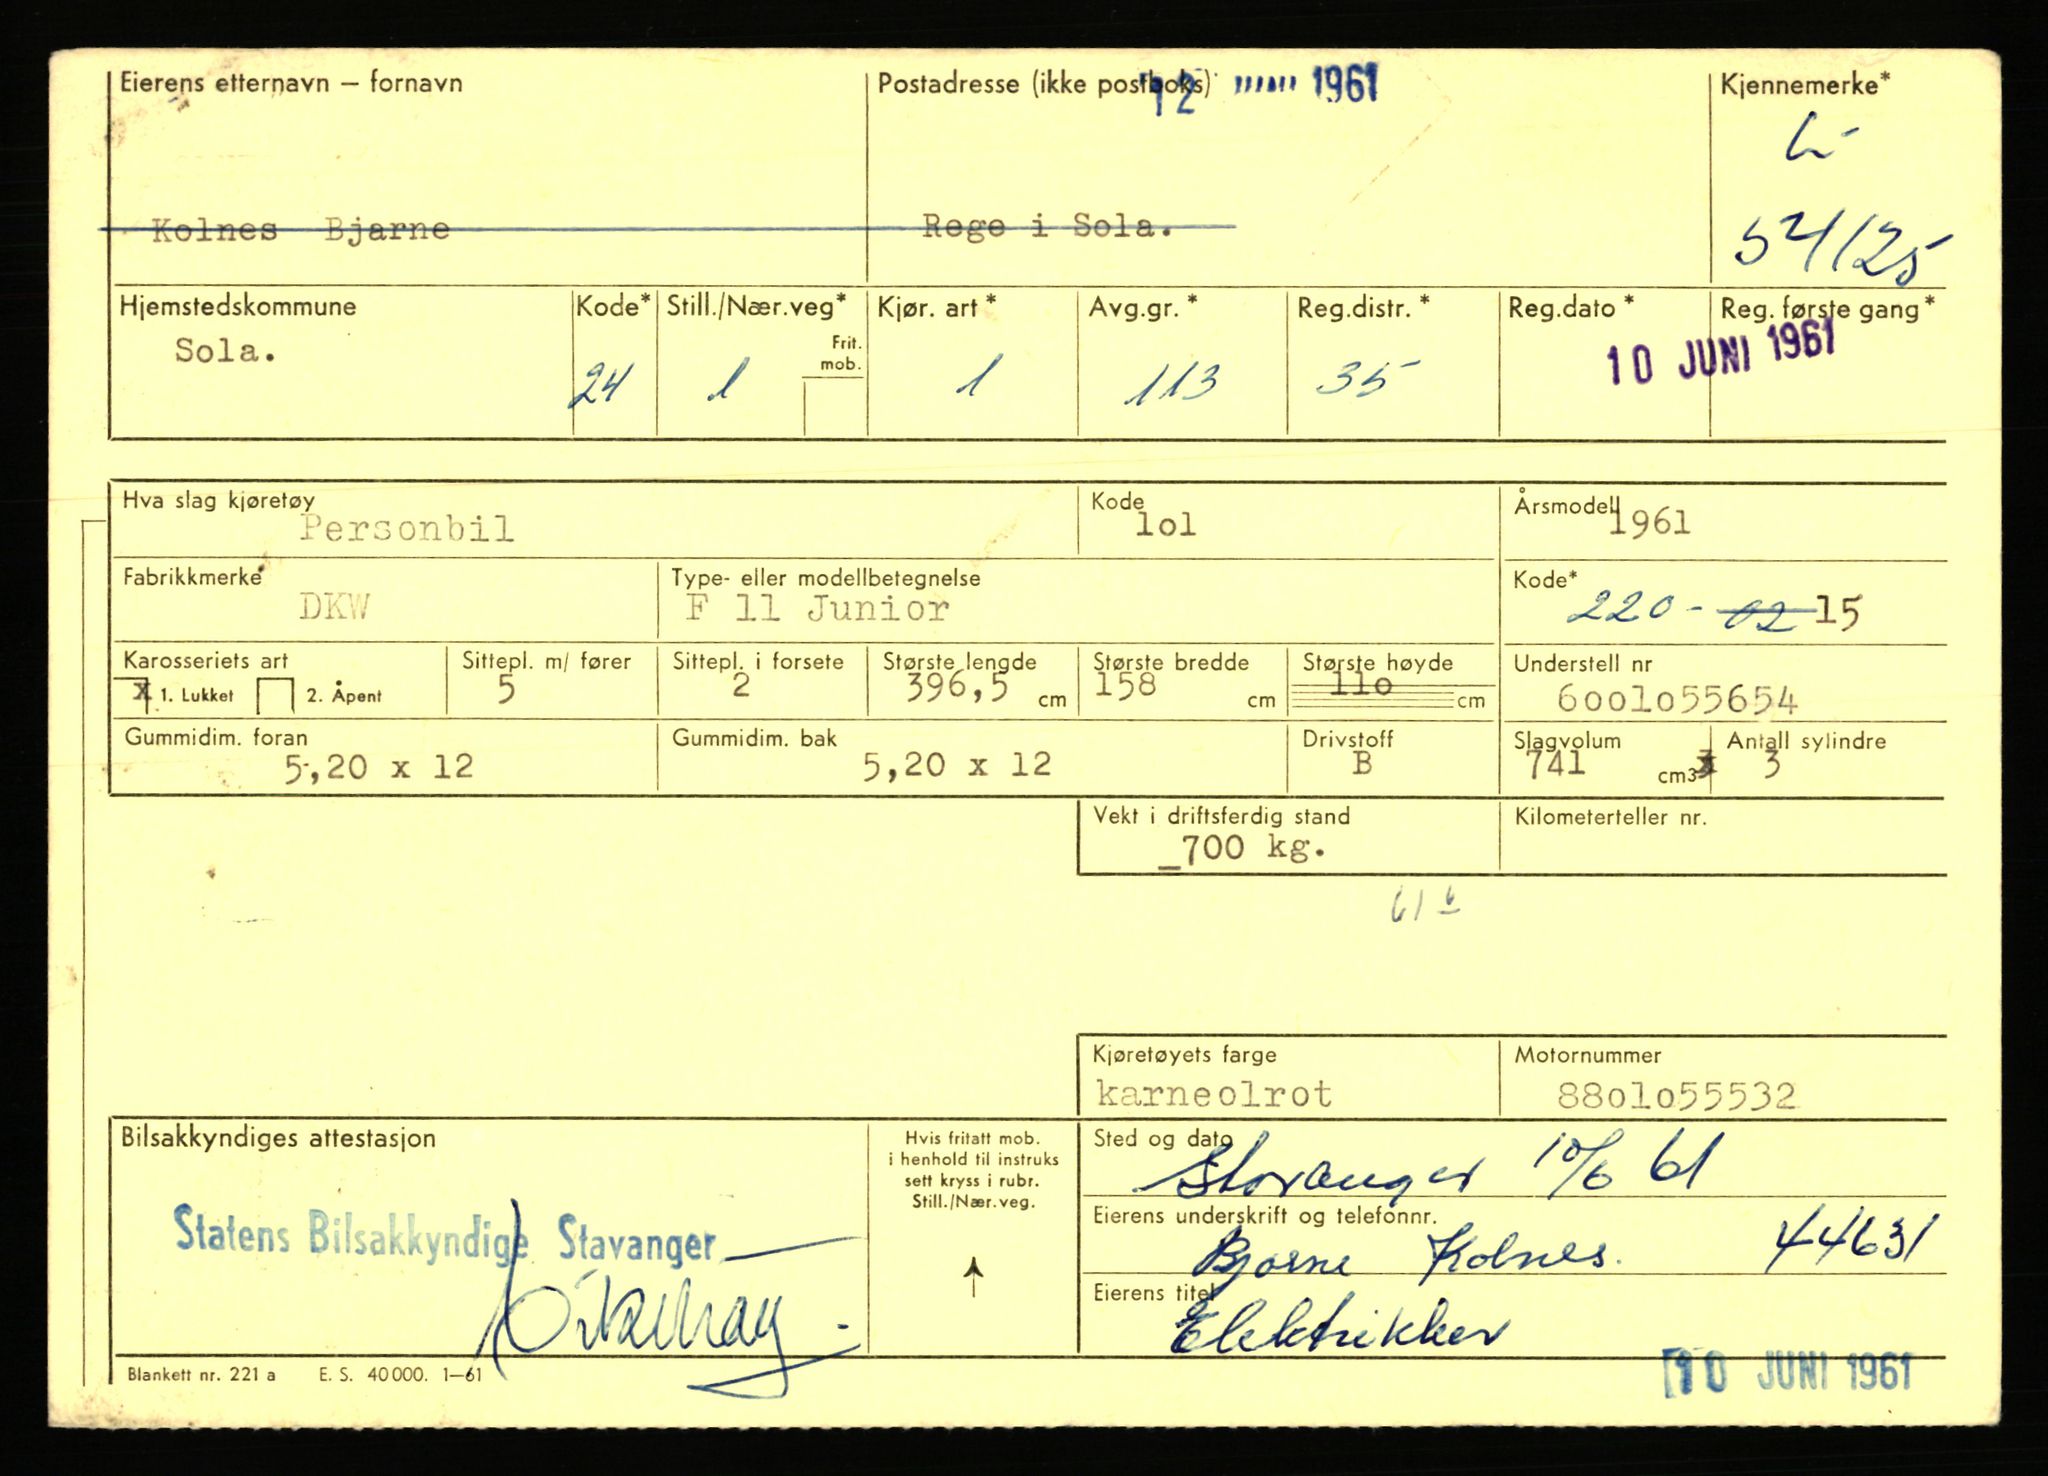 Eierens etternavn — fornavn
Postadresse (ikke postboks)
12 1961
Kjennemerke*
L-
Kolnes Bjarne
Rege i Sola.
54125
Hjemstedskommune
Kode*
Still./Nær.veg*
Kjør. art*
Avg.gr.*
Reg.distr.*
Reg.dato*
Reg. første gang*
Frit. mob.
Sola.
24
1
1
113
35
10 JUNI 1961
Hva slag kjøretøy
Personbil
Kode
lol
Årsmodell
1961
Fabrikkmerke
DKW
Type- eller modellbetegnelse
F 11 Junior
Kode*
220-02 15
Karosseriets art
x 1. Lukket 2. Åpent
Sittepl. m/ fører
5
Sittepl. i forsete
2
Største lengde
396,5 cm
Største bredde
158 cm
Største høyde
llo cm
Understell nr
6001055654
Gummidim. foran
5,20 x 12
Gummidim. bak
5,20 x 12
Drivstoff
B
Slagvolum
741 cm3
Antall sylindre
3
Vekt i driftsferdig stand
_700 kg.
Kilometerteller nr.
61 6
Kjøretøyets farge
karneolrot
Motornummer
8801055532
Bilsakkyndiges attestasjon
Statens Bilsakkyndige Stavanger
Hvis fritatt mob.
i henhold til instruks
sett kryss i rubr.
Still./Nær.veg.
Sted og dato
Stavanger 10/6 61
Eierens underskrift og telefonnr.
Bjarne Kolnes. 44631
Eierens titel
Elektrikker
10 JUNI 1961
Blankett nr. 221 a E. S. 40000. 1—61